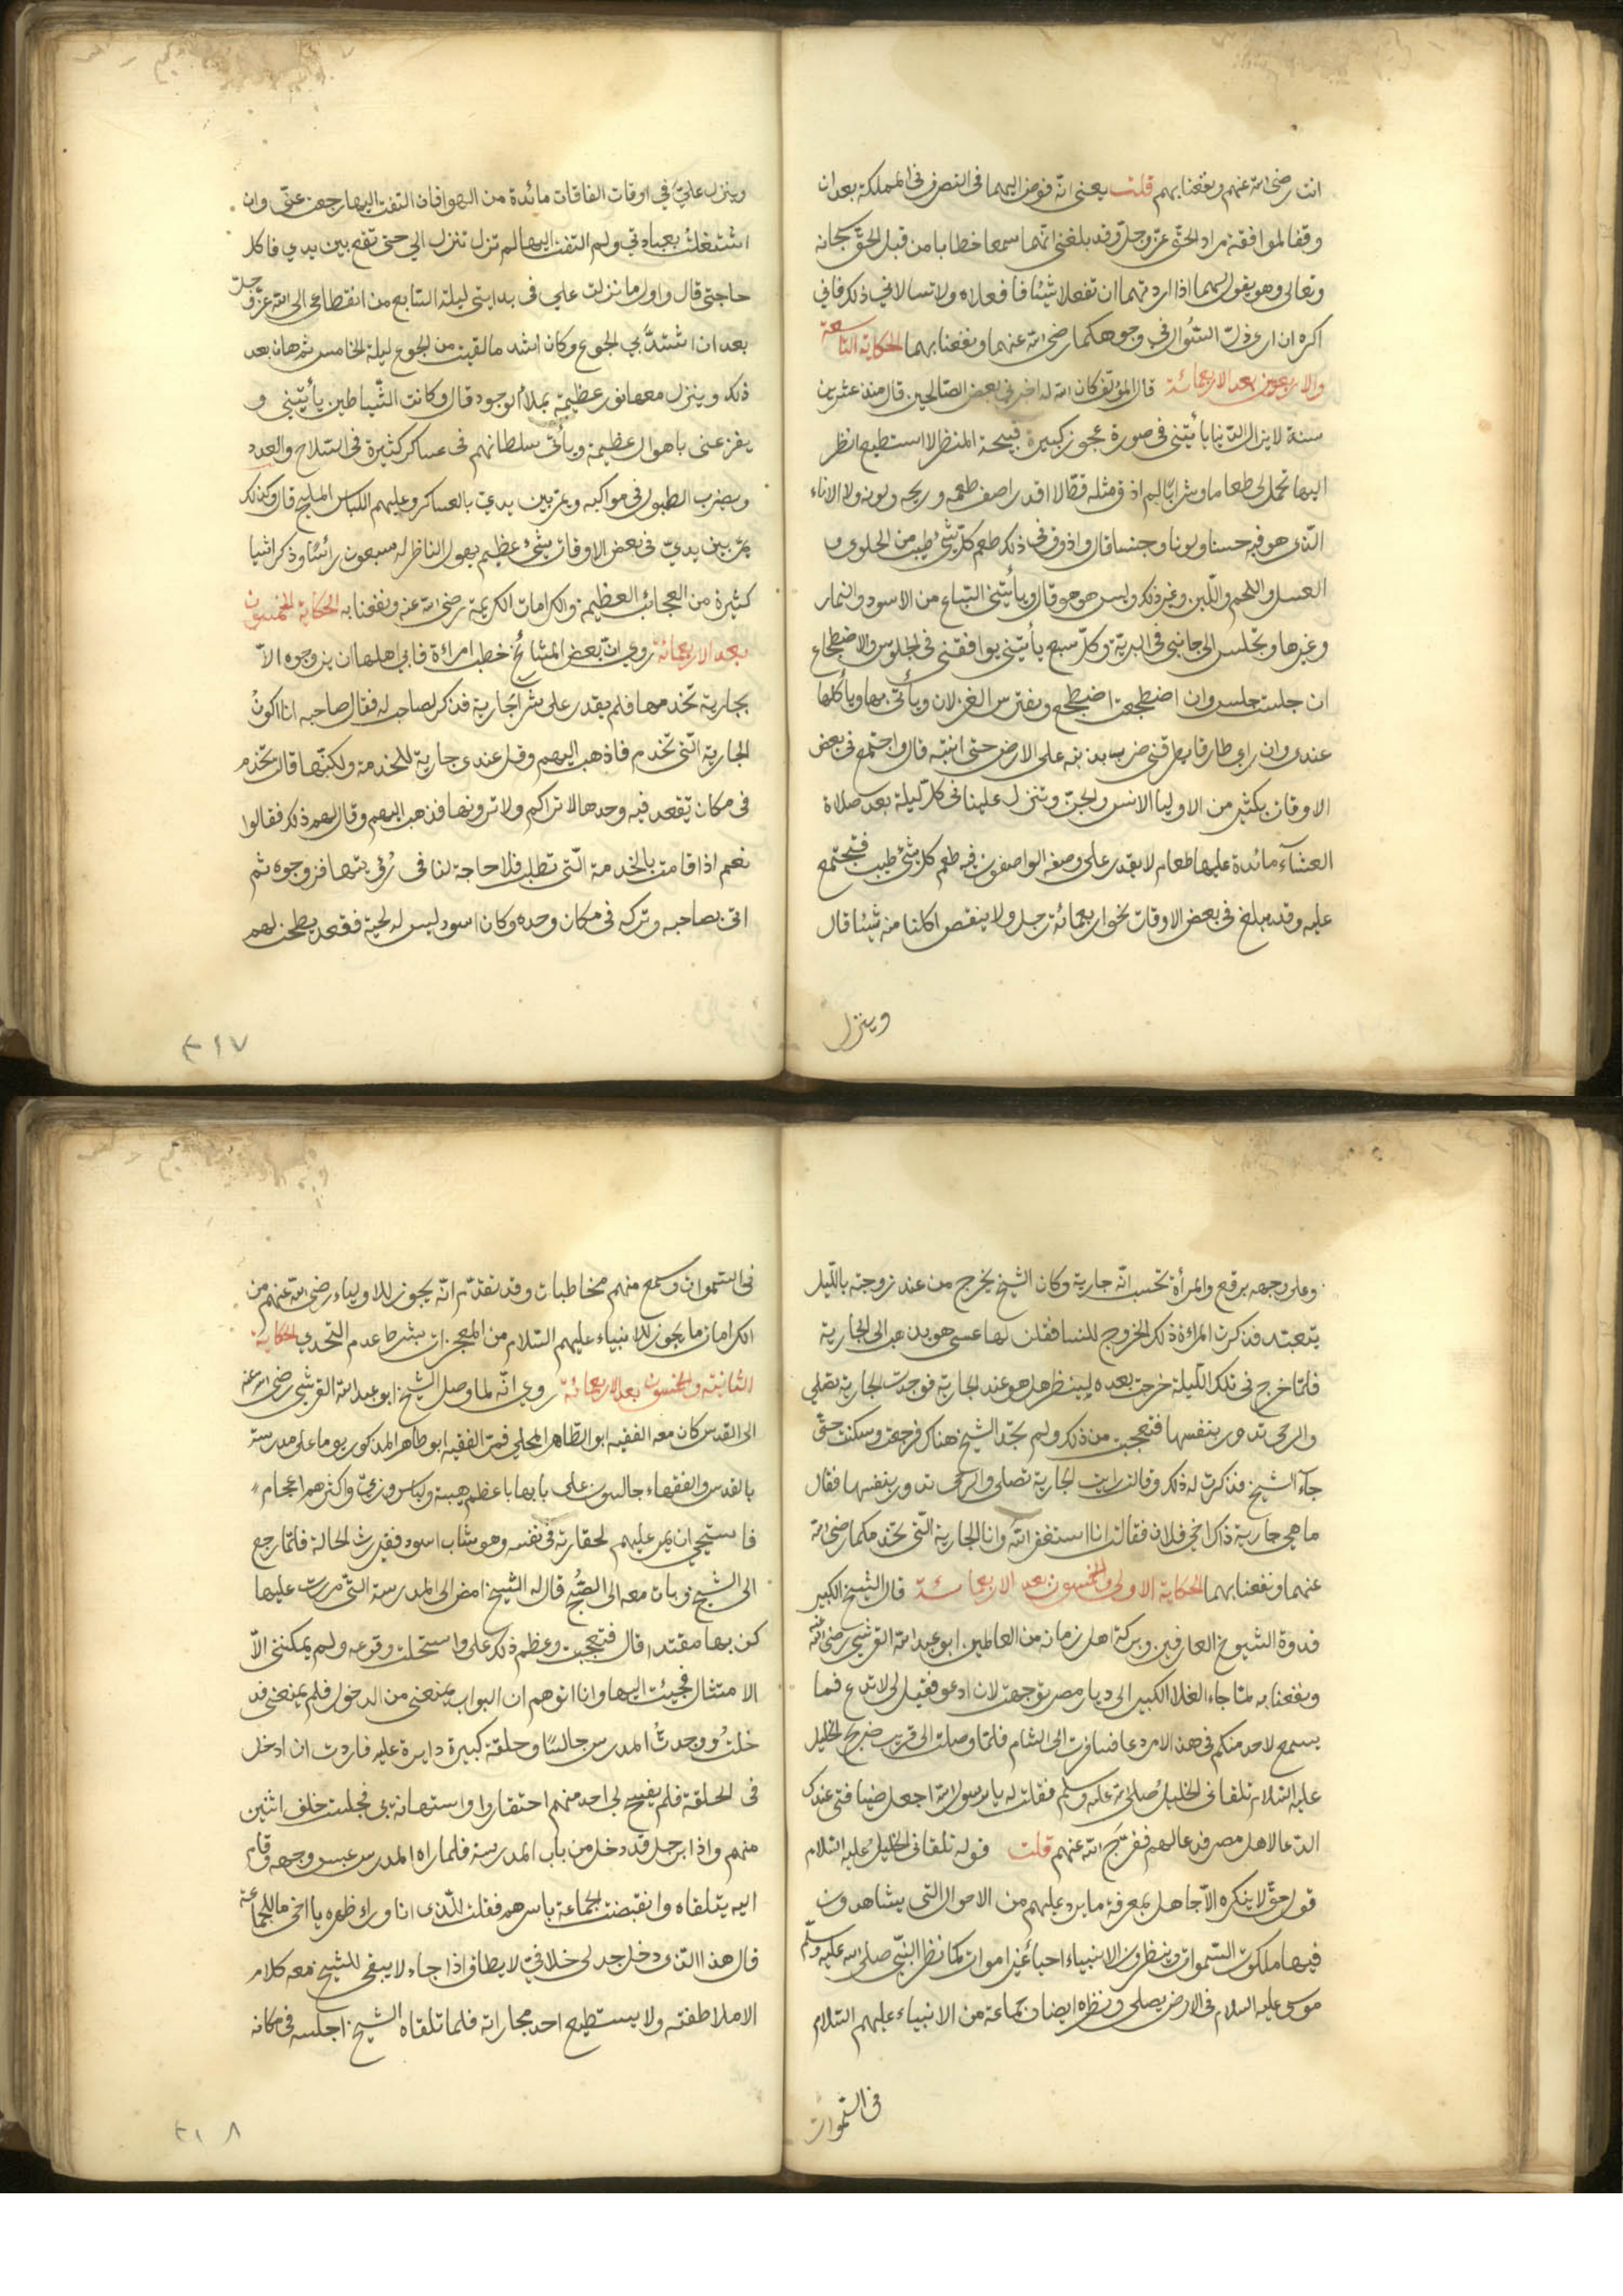 انت رضى الله عنهم ونفعنا بهم قلت يعنى انه فوض اليهما فى التصرف فى المملكة بعد ان
وقفا لموافقة مراد الحق عز وجل وقد بلغنى انهما سمعا خطابا من قبل الحق سبحانه
وتعالى وهو يقول لهما اذا اردتما ان تفعلا شيئا فافعلاه ولا تسالانى ذلك فانى
اكره ان ارى ذل السؤال فى وجوهكما رضى الله عنهما ونفعنا بهما الحكاية التاسعة
والاربعون بعد الاربعمائة قال المؤلف كان الله له اخبرنى بعض الصالحين قال منذ عشرين
سنة لا يزال الدنيا يأتينى فى صورة عجوز كبيرة قبيحة المنظر لا استطيع انظر
اليها تحمل لى طعاما وشرابا لم اذق مثله قط لا اقدر اصف طعمه وريحه ولونه ولا الاناء
الذى هو فيه حسنا ولونا وجنسا قال واذوق فى ذلك طعم كل شئ طيب من الحلوى و
العسل واللحم واللبن وغير ذلك وليس هو هو قال ويأتينى السباع من الاسود والنمار
وغيرها وتجلس الى جانبى فى البرية وكل سبع يأتينى يوافقنى فى الجلوس والاضطجاع
ان جلست جلس وان اضطجعت اضطجع ويفترس الغزلان ويأتى بها ويأكلها
عندى وان راى طارقا يطرقنى ضرب بذنبه على الارض حتى انتبه قال واجتمع فى بعض
الاوقات بكثير من الاوليا الانس والجن وتنزل علينا فى كل ليلة بعد صلاة
العشآء مائدة عليها طعام لا يقدر على وصفه الواصفون فيه طعم كل شئ طيب فتجتمع
عليه وقد يبلغ فى بعض الاوقات نحو اربعمائة رجل ولا ينقص اكلنا منه شيئا قال
وينزل
وينزل علي فى اوقات الفاقات مائدة من الهوا فان التفت اليها رجعت عنى وان
اشتغلت بعبادتى ولم التفت اليها لم تزل تنزل الي حتى تقع بين يدي فاكل
حاجتى قال واول ما نزلت علي فى بدايتى ليلة السابع من انقطاعى الى الله عز وجل
بعد ان اشتد بي الجوع وكان اشد ما لقيت من الجوع ليلة الخامس ثم هان بعد
ذلك وينزل معها نور عظيمة يملاء الوجود قال وكانت الشياطين يأتينى و
يفزعنى باهوال عظيمة ويأتى سلطانهم فى عساكر كثيرة فى السلاح والعدد
ويضرب الطبول فى مواكبه ويمر بين يدي بالعساكر وعليهم اللباس المليح قال وكذلك
يمر بين يدي فى بعض الاوقات شئ عظيم يهول الناظر له سبعون رائسا وذكر اشيا
كثيرة من العجائب العظيمة والكرامات الكريمة رضى الله عنه ونفعنا به الحكاية الخمسون
بعد الاربعمائة روى ان بعض المشائخ خطب امراءة فابى اهلها ان يزوجوه الا
بجارية تخدمها فلم يقدر على شراء جارية فذكر لصاحب له فقال صاحبه انا اكون
الجارية التى تخدم فاذهب اليهم وقل عندى جارية للخدمة ولكنها قالت تخدم
فى مكان تقعد فيه وحدها لا تراكم ولا ترونها فذهب اليهم وقال لهم ذلك فقالوا
نعم اذا قامت بالخدمة التى تطلب فلا حاجة لنا فى رؤيتها فزوجوه ثم
اتى بصاحبه وتركه فى مكان وحده وكان اسود ليس له لحية فقعد يطحن لهم
٣١٧
وعلى وجهه برقع والمرأة تحسب انه جارية وكان الشيخ يخرج من عند زوجته بالليل
يتعبد فذكرت المراءة ذلك الخروج للنسا فقلن لها عسى هو يذهب الى الجارية
فلما خرج فى تلك الليلة خرجت بعده لينظر هل هو عند الجارية فوجدت الجارية تصلي
والرحى تدور بنفسها فتعجبت من ذلك ولم تجد الشيخ هناك فرجعت وسكنت حتى
جآء الشيخ فذكرت له ذلك وقالت رايت الجارية تصلى والرحى تدور بنفسها فقال
ما هى جارية ذاك اخى فلان فقالت انا استغفر الله وانا الجارية التى تخدمكما رضى الله
عنهما ونفعنا بهما الحكاية الاولى والخمسون بعد الاربعمائة قال الشيخ الكبير
قدوة الشيوخ العارفين وبركة اهل زمانه من العالمين ابو عبد الله القرشى رضى الله عنه
ونفعنا به لما جاء الغلا الكبير الى ديار مصر توجهت لان ادعو فقيل لى لا تدع فما
يسمع لاحد منكم فى هذا الامر دعا فسافرت الى الشام فلما وصلت الى قريب ضريح الخليل
عليه السلام تلقانى الخليل صلى الله عليه وسلم فقلت له يا رسول الله اجعل ضيافتى عندك
الدعا لاهل مصر فدعا لهم ففرج الله عنهم قلت قوله تلقانى الخليل عليه السلام
قول حق لا ينكره الا جاهل بمعرفة ما يرد عليهم من الاحوال التى يشاهدون
فيها ملكوت السموات وينظرون الانبياء احياء غير اموات كما نظر النبى صلى الله عليه وسلم
موسى عليه السلام فى الارض يصلى ونظره ايضا فى جماعة من الانبياء عليهم السلام
فى السموات
فى السموات وسمع منهم مخاطبات وقد تقدم انه يجوز للاولياء رضى الله عنهم من
الكرامات ما يجوز للانبياء عليهم السلام من المعجزات بشرط عدم التحدي الحكاية
الثانية والخمسون بعد الاربعمائة روى انه لما وصل الشيخ ابو عبد الله القرشى رضى الله عنه
الى القدس كان معه الفقيه ابو الطاهر المحلي فمر الفقيه ابو طاهر المذكور يوما على مدرسة
بالقدس والفقهاء جالسون على بابها باعظم هيبة ولباس وزى واكثرهم اعجام
فاستحيى ان يمر عليهم لحقارته فى نفسه وهو شاب اسود فقير رث الحالة فلما رجع
الى الشيخ وبات معه الى الصبح قال له الشيخ امض الى المدرسة التى مررت عليها
كن بها مقتدا قال فتعجبت وعظم ذلك على واستحلت وقوعه ولم يمكننى الا
الامتثال فجيئت اليها وانا اتوهم ان البواب يمنعنى من الدخول فلم يمنعنى فد
خلت ووجدت المدرس جالسا وحلقة كبيرة دايرة عليه فاردت ان ادخل
فى الحلقة فلم يفسح لى احد منهم احتقارا واستهانة بى فجلست خلف اثنين
منهم واذا برجل قد دخل من باب المدرسة فلما راه المدرس عبس وجهه وقام
اليه يتلقاه وانقبضت الجماعة باسرهم فقلت للذى انا وراء ظهره يا اخى ما للجماعة
قال هذا الذى دخل جدلى خلافى لا يطاق اذا جاء لا يبقى للشيخ معه كلام
الا ملاطفته ولا يستطيع احد مجاراته فلما تلقاه الشيخ اجلسه فى مكانه
٣١٨